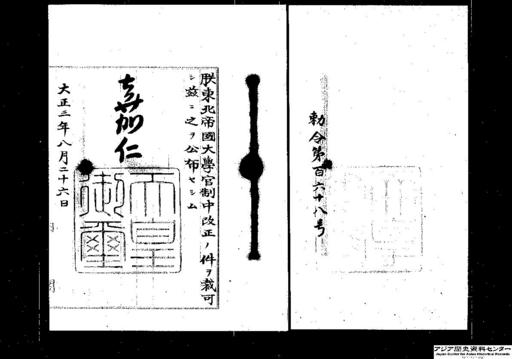 勅令第百六十八号
朕東北帝國大學官制中改正ノ件ヲ裁可
シ茲ニ之ヲ公布セシム
嘉仁
天皇御璽
大正三年八月二十六日
アジア歴史資料センター
Japan Center for Asian Historical Records